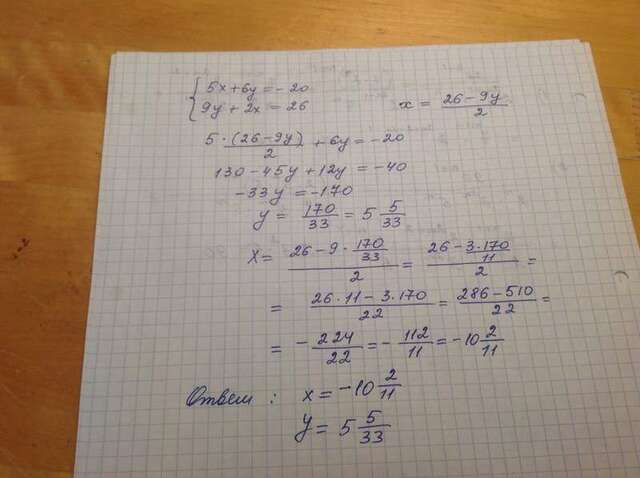 {5x+6y=-20
9y+2x=26 x = \frac{26-9y}{2}
5 · \frac{(26-9y)}{2} + 6y = -20
130-45y+12y = -40
-33y = -170
y = \frac{170}{33} = 5 \frac{5}{33}
x = \frac{26-9 · \frac{170}{33}}{2} = \frac{26 - \frac{3·170}{11}}{2} =
= \frac{26·11-3·170}{22} = \frac{286-510}{22} =
= -\frac{224}{22} = -\frac{112}{11} = -10 \frac{2}{11}
Ответ: x = -10 \frac{2}{11}
y = 5 \frac{5}{33}